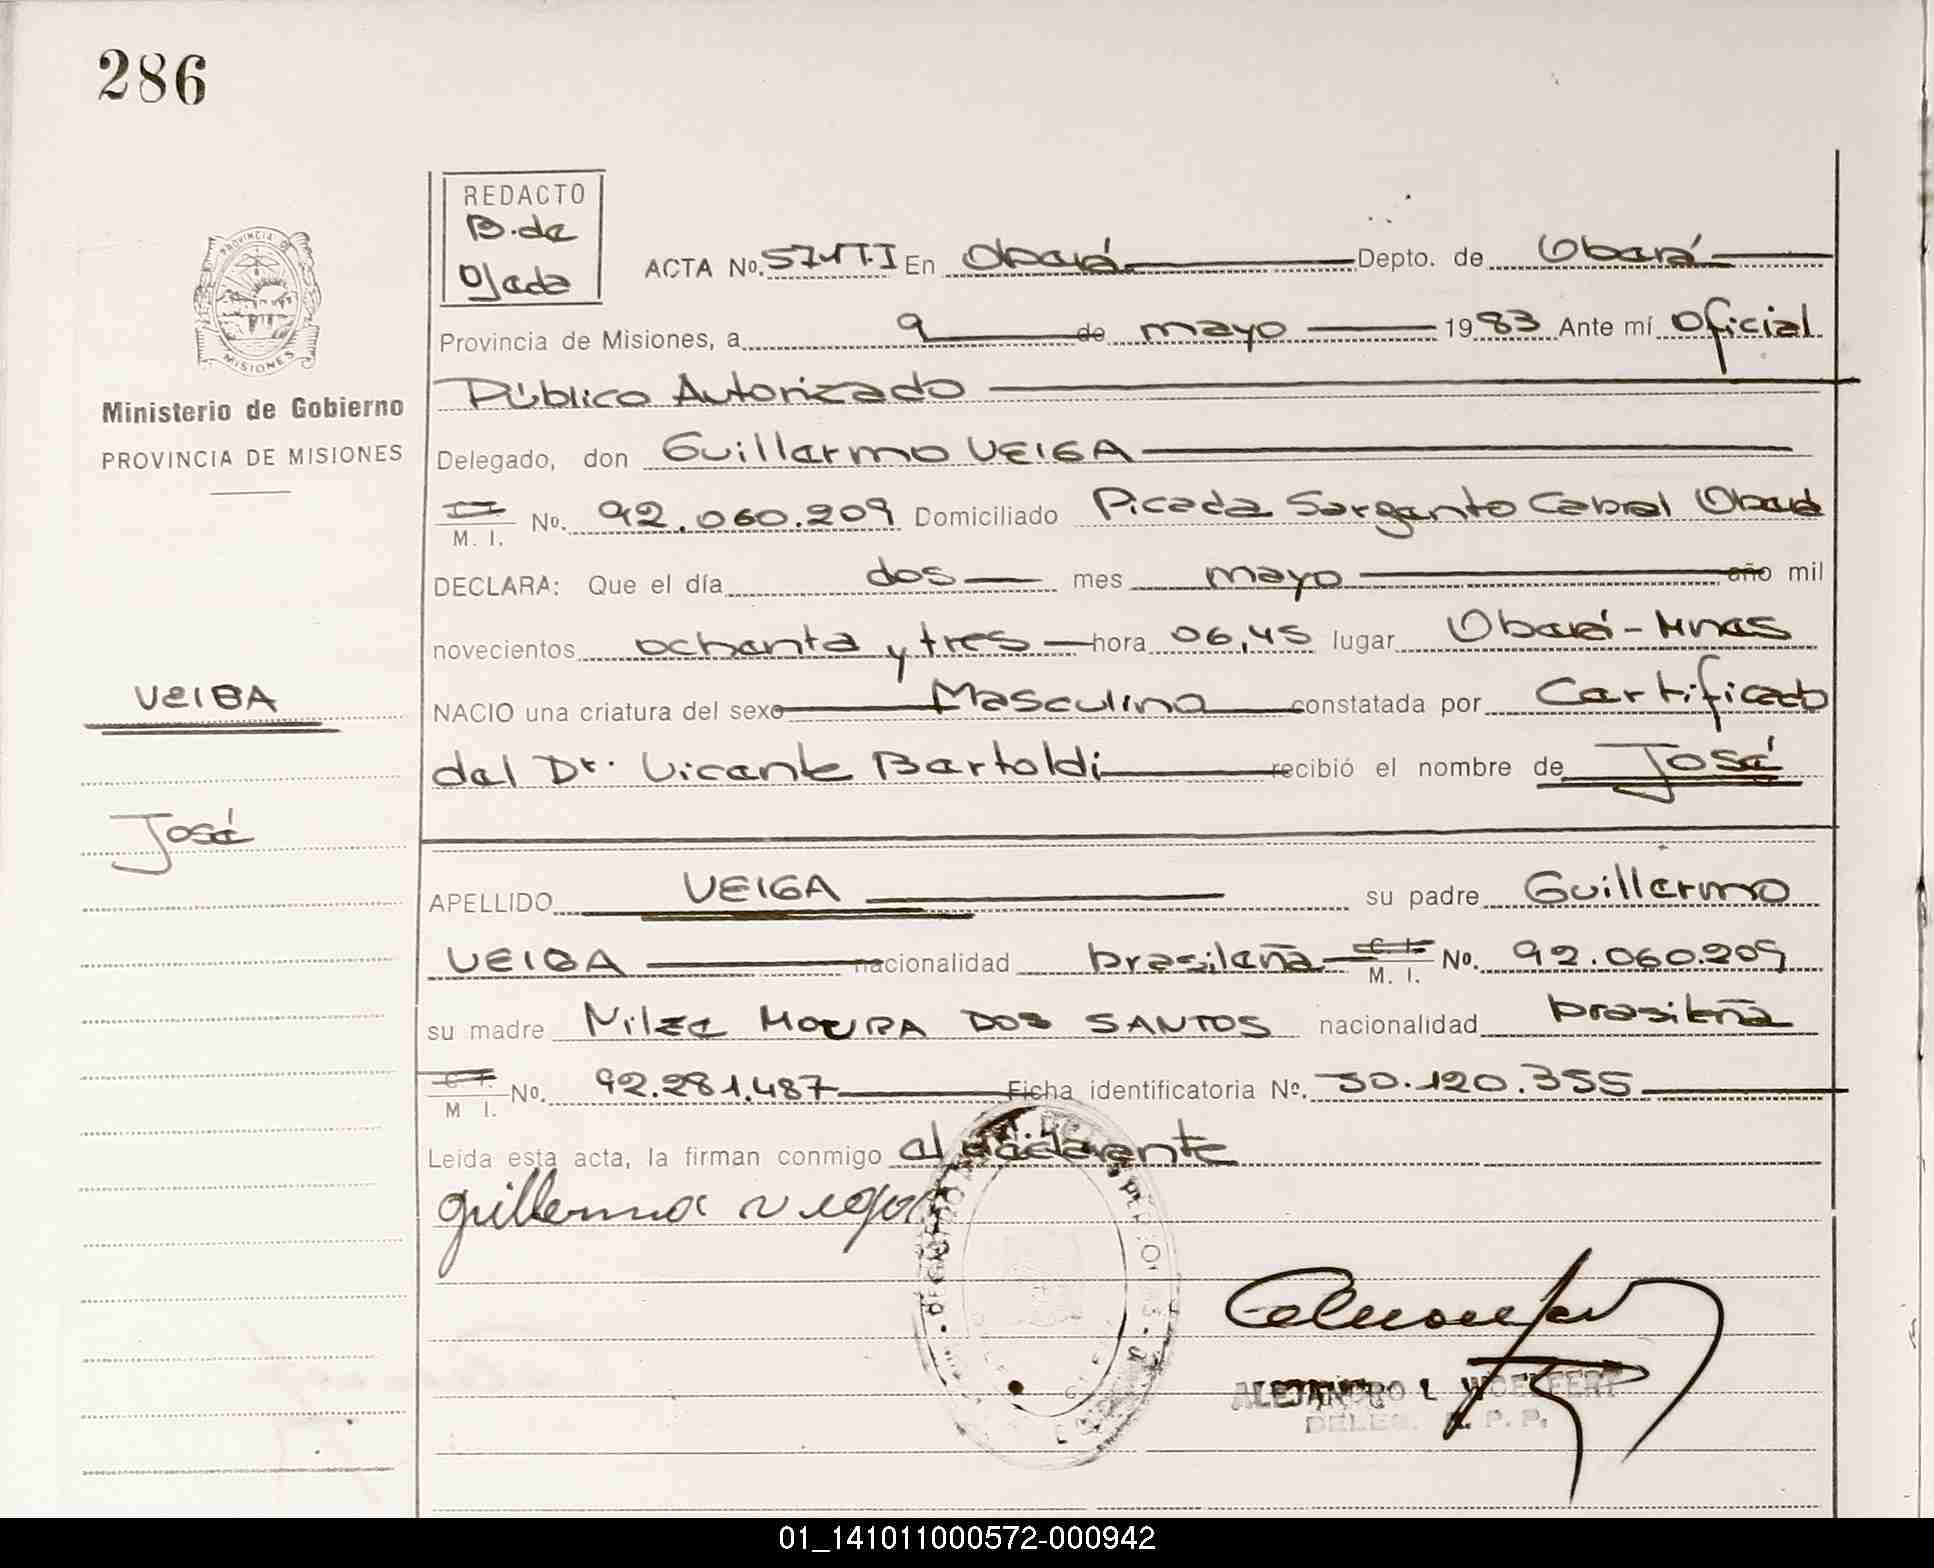 286
REDACTO
B. de
Ojeda
ACTA No. 571 T.I En Oberá Depto. de Oberá
Provincia de Misiones, a 9 de mayo 1983 Ante mí Oficial
Público Autorizado
PROVINCIA DE
MISIONES
Ministerio de Gobierno
PROVINCIA DE MISIONES
Delegado, don Guillermo VEIGA
C. I.
M. I. No. 92.060.209 Domiciliado Picada Sargento Cabral Oberá
DECLARA: Que el día dos mes mayo año mil
novecientos ochenta y tres hora 06,45 lugar Oberá - Mnes
VEIGA
NACIO una criatura del sexo Masculino constatada por Certificado
del Dr. Vicente Bartoldi recibió el nombre de José
José
APELLIDO VEIGA su padre Guillermo
VEIGA nacionalidad brasileña C. I. M. I. No. 92.060.209
su madre Nilza MOURA DOS SANTOS nacionalidad brasileña
C. I.
M. I. No. 92.281.487 Ficha identificatoria No. 30.120.355
Leida esta acta, la firman conmigo el declarante
guillermo veiga
ALEJANDRO L WOELFERT
DELEG. R. P. P.
01_141011000572-000942